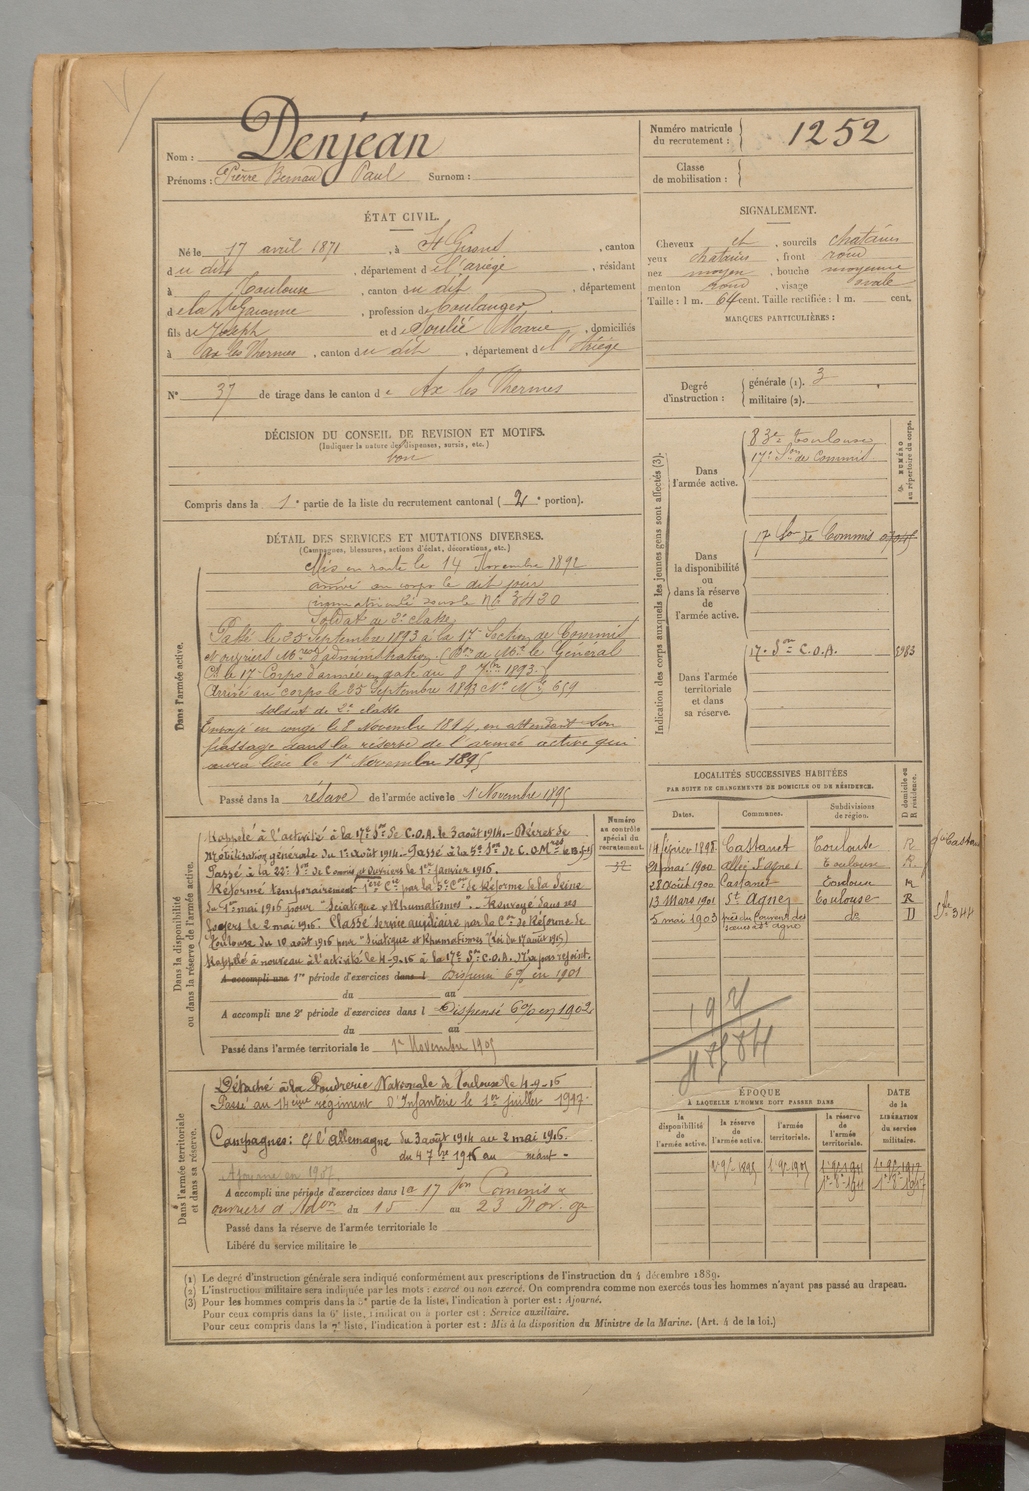 Nom : Denjean
Prénoms : Pierre Bernard Paul Surnom :
Numéro matricule du recrutement : 1252
Classe de mobilisation :
ÉTAT CIVIL.
Né le 17 avril 1871, à St Girons, canton
du dit, département de l'ariège, résidant
à Toulouse, canton du dit, département
de la Hte Garonne, profession de boulanger
fils de Joseph et de Soulié Marie, domiciliés
à ax les Thermes, canton du dit, département de l'Ariège
N° 37 de tirage dans le canton de Ax les Thermes
SIGNALEMENT.
Cheveux et, sourcils chatains
yeux chatains, front rond
nez moyen, bouche moyenne
menton rond, visage ovale
Taille : 1 m. 64 cent. Taille rectifiée : 1 m. cent.
MARQUES PARTICULIÈRES :
Degré d'instruction : générale (1). 3
militaire (2).
DÉCISION DU CONSEIL DE REVISION ET MOTIFS.
(Indiquer la nature des dispenses, sursis, etc.)
bon
Compris dans la 1e partie de la liste du recrutement cantonal (2e portion).
DÉTAIL DES SERVICES ET MUTATIONS DIVERSES.
(Campagnes, blessures, actions d'éclat, décorations, etc.)
Dans l'armée active.
Mis en route le 14 Novembre 1892
arrivé au corps le dit jour
immatriculé sous le No 3430
Soldat de 2e classe
Passé le 25 Septembre 1893 à la 17e Section de Commis
et ouvriers Mres d'administration (Don de Mr le Général
Ct le 17e Corps d'armée en date du 8 7bre 1893.)
Arrivé au corps le 25 Septembre 1893 No Mle 659
soldat de 2e classe
Envoyé en congé le 8 Novembre 1894, en attendant son
passage dans la réserve de l'armée active qui
aura lieu le 1er Novembre 1895
Passé dans la réserve de l'armée active le 1 Novembre 1895
Indication des corps auxquels les jeunes gens sont affectés (3).
NUMÉRO au répertoire du corps.
Dans l'armée active.
83e Toulouse
17e Son de Commis
Dans la disponibilité ou dans la réserve de l'armée active.
17e Son de Commis
Dans l'armée territoriale et dans sa réserve.
17e Son C.O.A.
Dans la disponibilité ou dans la réserve de l'armée active.
Numéro au contrôle spécial du recrutement.
Rappelé à l'activité à la 17e Son de C.O.A. le 3 août 1914. — Décret de
Mobilisation générale du 1er août 1914. — Passé à la 5e Son de C.O.M
Passé à la 22e Son de Commis et Ouvriers le 1er janvier 1916.
Réformé temporairement 1ère Cie par la 5e Con de Réforme de la Seine
du 1er mai 1916 pour "Sciatique et Rhumatismes". Renvoyé dans ses
foyers le 2 mai 1916. Classé service auxiliaire par la Con de Réforme de
Toulouse du 10 août 1916 pour "Sciatique et Rhumatismes (Loi du 17 août 1915)
Rappelé à nouveau à l'activité le 4-9-16 à la 17e Son C.O.A. N'a pas rejoint.
A accompli une 1re période d'exercices dans l Dispensé 6% en 1901
du au
A accompli une 2e période d'exercices dans l Dispensé 6% en 1902
du au
Passé dans l'armée territoriale le 1er Novembre 1905
LOCALITÉS SUCCESSIVES HABITÉES
PAR SUITE DE CHANGEMENTS DE DOMICILE OU DE RÉSIDENCE.
Dates. Communes. Subdivisions de région. D domicile ou R résidence.
14 février 1898 Castanet Toulouse R
21 mai 1900 allée St Agne 1 Toulouse R
28 août 1900 Castanet Toulouse R
13 Mars 1901 St Agne Toulouse R
5 mai 1903 près du Couvent des sœurs à St agne do D
Dans l'armée territoriale et dans sa réserve.
Détaché à la Poudrerie Nationale de Toulouse le 4-9-16
Passé au 14ème régiment D'Infanterie le 1er juillet 1917.
Campagnes : c/ l'allemagne du 3 août 1914 au 2 mai 1916.
du 4 7bre 1916 au néant -
Ajourné en 1907
A accompli une période d'exercices dans la 17 Son Commis &
ouvriers d'Adon du 15 au 23 Nov. 
Passé dans la réserve de l'armée territoriale le
Libéré du service militaire le
ÉPOQUE À LAQUELLE L'HOMME DOIT PASSER DANS
la disponibilité de l'armée active. la réserve de l'armée active. l'armée territoriale. la réserve de l'armée territoriale.
DATE de la LIBÉRATION du service militaire.
1er 9bre 1895 1er 9bre 1905 1er 9bre 1911 1er 9bre 1917
(1) Le degré d'instruction générale sera indiqué conformément aux prescriptions de l'instruction du 4 décembre 1889.
(2) L'instruction militaire sera indiquée par les mots : exercé ou non exercé. On comprendra comme non exercés tous les hommes n'ayant pas passé au drapeau.
(3) Pour les hommes compris dans la 5e partie de la liste, l'indication à porter est : Ajourné.
Pour ceux compris dans la 6e liste, l'indication à porter est : Service auxiliaire.
Pour ceux compris dans la 7e liste, l'indication à porter est : Mis à la disposition du Ministre de la Marine. (Art. 4 de la loi.)